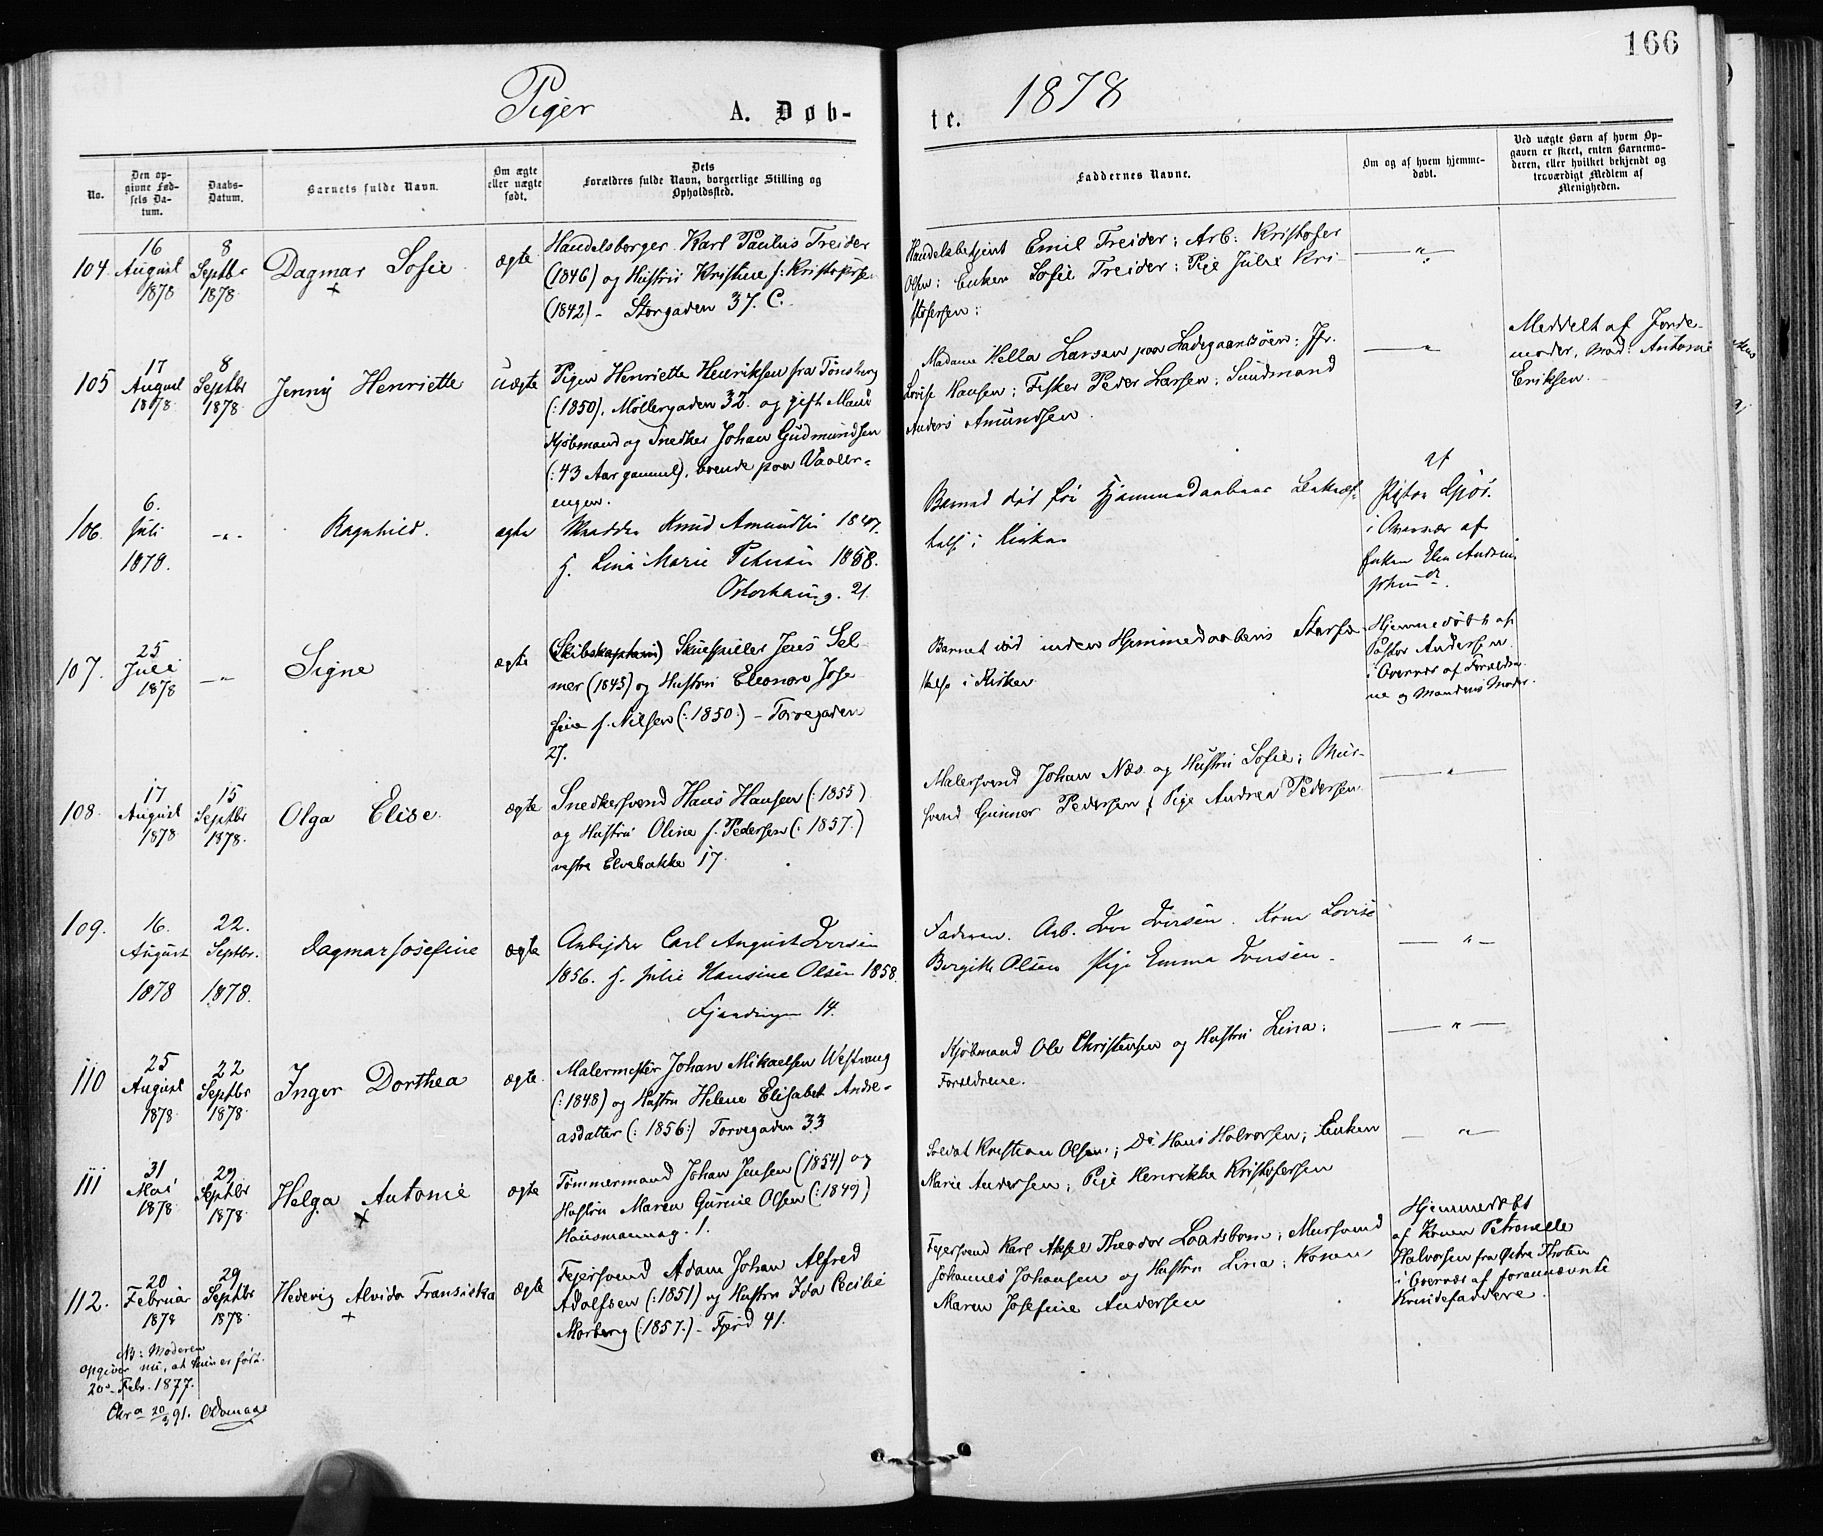 166
Piger A. Døb-
te. 1878
No.
Den op-
givne Fød-
sels Da-
tum.
Daabs-
Datum.
Barnets fulde Navn.
Om ægte
eller uægte
født.
Dets
Forældres fulde Navn, borgerlige Stilling og
Opholdssted.
Faddernes Navne.
Om og af hvem hjemme-
døbt.
Ved uægte Børn af hvem Op-
gaven er skeet, enten Barnemo-
deren, eller hvilket bekjendt og
troværdigt Medlem af
Menigheden.
104.
16
August
1878
8
Septbr
1878
Dagmar Sofie
+
ægte
Handelsborger Karl Paulus Treider
(1846) og Hustru Kristine f: Kristofersen
(1842) - Storgaden 37. C.
Handelsbetjent Emil Treider; Arb: Kristofer
Olsen; Enken Sofie Treider; Pige Julie Kri
stofersen;
— " —
105
17
August
1878
8
Septbr
1878.
Jenny Henriette
Uægte
Pigen Henriette Henriksen fra Tønsberg
(:1850), Møllergaden 32. og gift Mand
Kjøbmand og Snedker Johan Gudmundsen
(:43 Aar gammel), boende paa Vaaler-
engen.
Madame Hella Larsen paa Ladegaardsøen; Jfr.
Lovise Hansen; Fisker Peder Larsen; Sundmand
Anders Amundsen.
— " —
Meddelt af Jorde-
moder, Mad: Antonie
Eriksen.
106.
6.
Juli
1878.
- " -
Ragnhild.
ægte
Knud Amundsen 1847.
f. Lina Marie Petersen 1858.
Osterhausg. 21.
Barnet død før Hjemmedaabens Bekræf-
telse i Kirken
af
i Overvær af
Enken
107.
25
Juli
1878
— " —
Signe
ægte
(Skibskaptein) Skuespiller Jens Sel
mer (1845) og Hustru Eleonore Jose
fine f. Nilsen (:1850:) - Torvegaden
27.
Barnet død inden Hjemmedaabens Stadfæ
stelse i Kirken
Hjemmedøbt af
Pastor Andersen
i Overvær af Forældre
ne og Mandens Moder.
108.
17
August
1878
15
Septbr
1878.
Olga Elise.
ægte
Snedkersvend Hans Hansen (:1855)
og Hustru Oline f. Pedersen (:1857.)
vestre Elvebakke 17.
Malersvend Johan Næs og Hustru Sofie; Mur-
svend Gunner Pedersen; Pige Andrea Pedersen
— " —
109.
16.
August
1878
22.
Septbr.
1878.
Dagmar Josefine
ægte
Arbejder Carl August Iversen
1856. f. Julie Hansine Olsen 1858.
Fjerdingen 14.
Faderen. Arb. Iver Iversen. Kone Lovise
Bergitte Olsen Pige Emma Iversen.
— " —
110
25
August
1878
22
Septbr
1878.
Inger Dorthea
ægte.
Malermester Johan Mikaelsen Westvang
(:1848) og Hustru Helene Elisabet Andre-
asdatter (:1856:) Torvegaden 33
Kjøbmand Ole Christensen og Hustru Lina;
Forældrene.
— " —
111
31
Mai
1878
29
Septbr
1878.
Helga Antonie
+
ægte
Tømmermand Johan Jensen (1854) og
Hustru Maren Gurine Olsen (:1849)
Hausmannsg. 1.
Soldat Kristian Olsen; Do Hans Halvorsen; Enken
Marie Andersen; Pige Henrikke Kristofersen
— " —
112.
20
Februar
1878
29
Septbr
1878.
Hedevig Alvida Fransiska
+
ægte
Fejersvend Adam Johan Alfred
Adolfsen (:1851) og Hustru Ida Cecilie
Morberg (:1857.) - Fjerd 41.
Fejersvend Karl Aksel Theodor; Mursvend
Johannes Johansen og Hustru Lina; Konen
Maren Josefine Andersen
Hjemmedøbt
af Konen Petronelle
Halvorsen fra Østre Thoten
i Overvær af forannævnte
Kvindefaddere.
NB: Moderen
opgiver nu, at hun er født
20de Febr. 1877.
Chra 20/3 91.